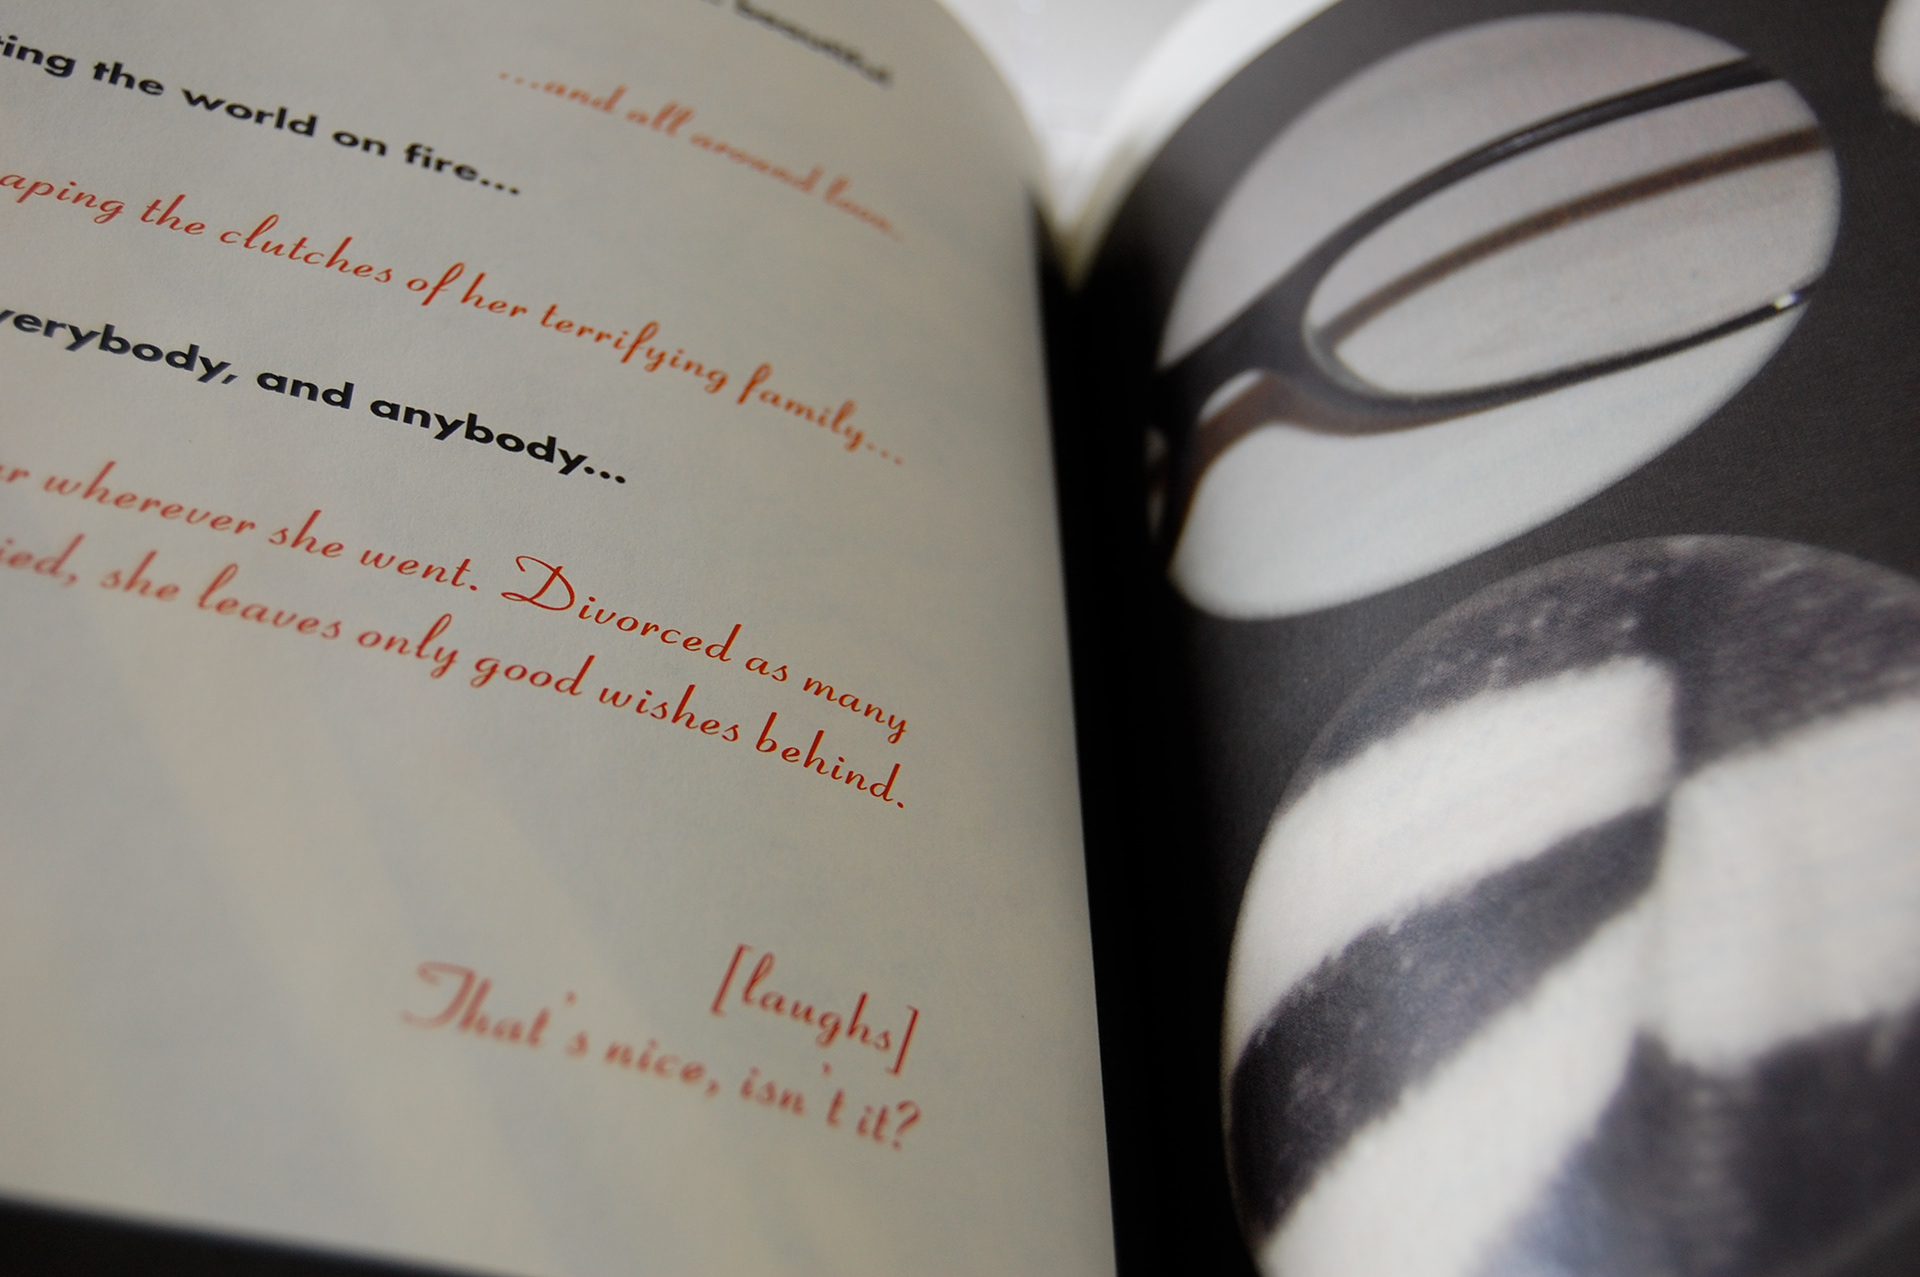 beautiful
...and all around town.
ting the world on fire...
aping the clutches of her terrifying family...
verybody, and anybody...
r wherever she went. Divorced as many
ied, she leaves only good wishes behind.
[laughs]
That's nice, isn't it?